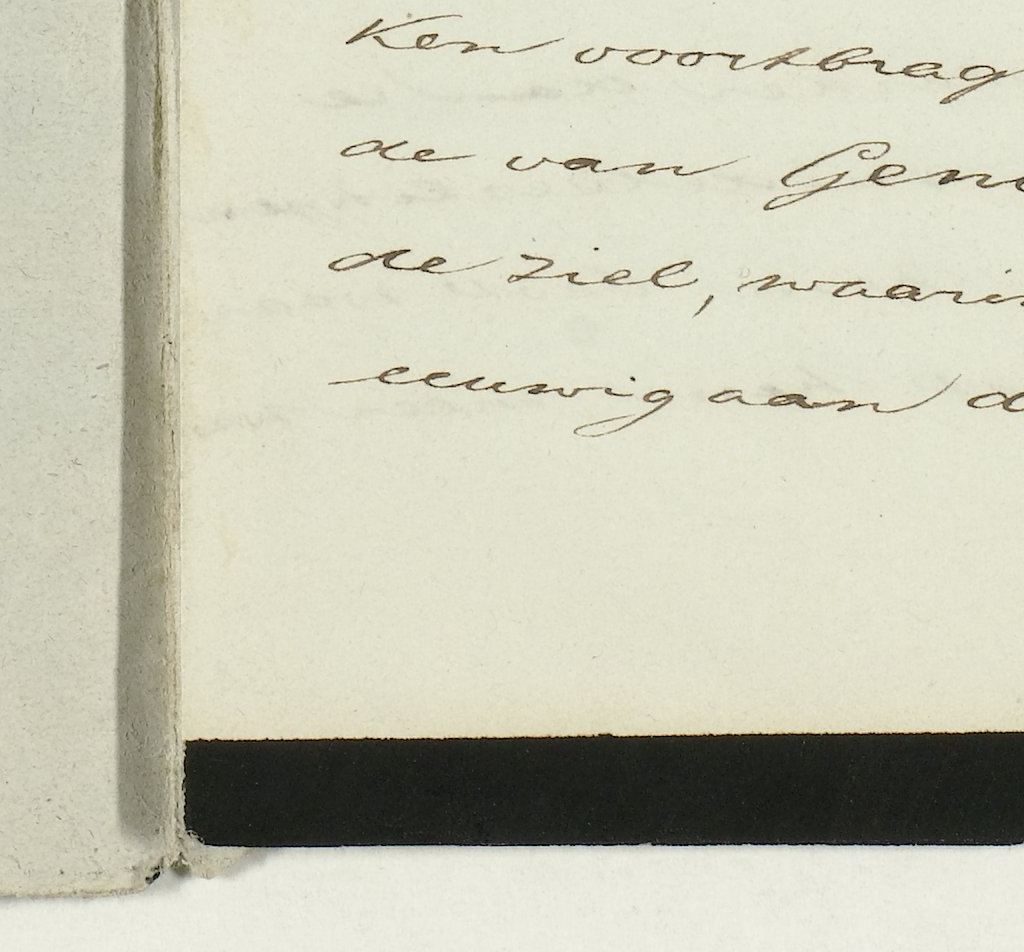 ken voortbrag
de van Gen
de ziel, waarin
eeuwig aan d